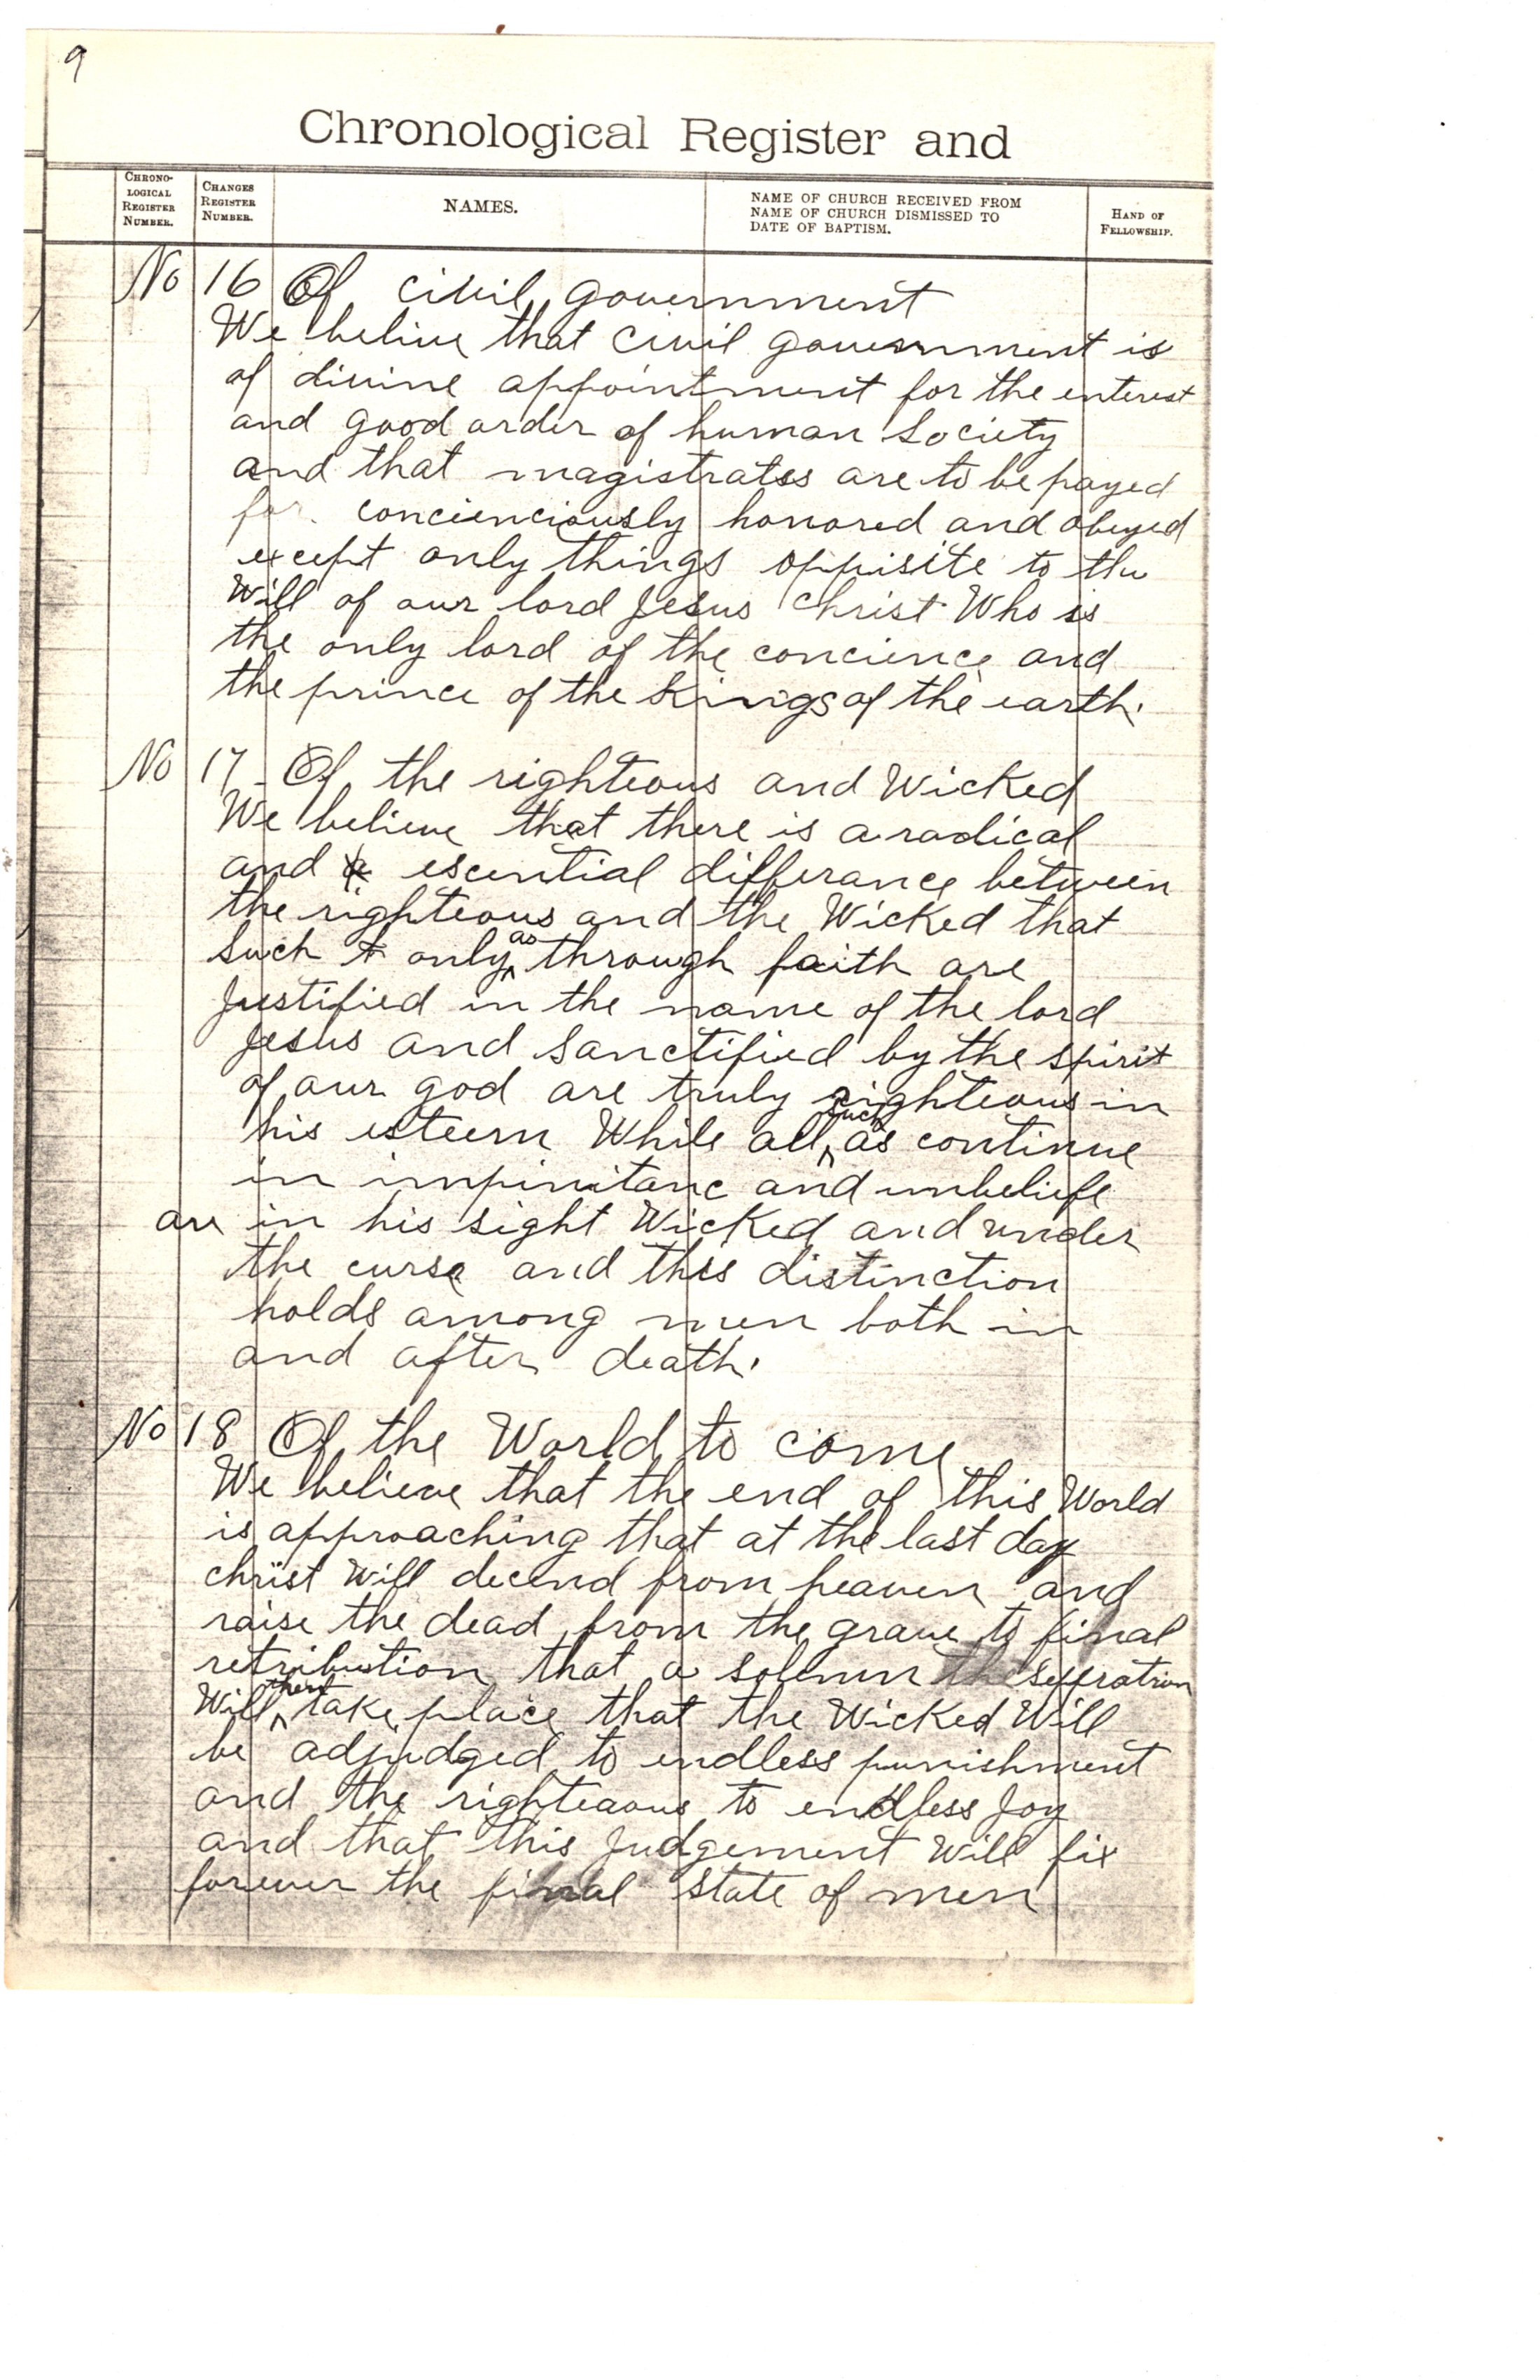 9
Chronological Register and
CHRONO-
LOGICAL
REGISTER
NUMBER.
CHANGES
REGISTER
NUMBER.
NAMES.
NAME OF CHURCH RECEIVED FROM
NAME OF CHURCH DISMISSED TO
DATE OF BAPTISM.
HAND OF
FELLOWSHIP.
No 16 Of civil government
We belive that civil government is
of divine appointment for the enterest
and good order of human society
and that magistrates are to be payed
for. concienciously honored and obeyed
except only things oppisite to the
Will of our lord Jesus Christ Who is
the only lord of the concience and
the prince of the Kings of the earth.
No 17 Of the righteous and Wicked
We believe that there is a radical
and escential differance between
the righteous and the Wicked that
such only as through faith are
Justified in the name of the lord
Jesus and sanctified by the spirit
of our god are truly righteous in
his esteem While all such as continue
in impinitanc and unbeliefe
are in his sight Wicked and under
the curse and this distinction
holds among men both in
and after death.
No 18 Of the World to come
We believe that the end of this World
is approaching that at the last day
christ Will decend from heaven and
raise the dead from the grave to final
retribution that a solemn seperation
Will then take place that the Wicked Will
be adjudged to endless punishment
and the righteaous to endless Joy
and that this Judgement Will fix
forever the final state of men